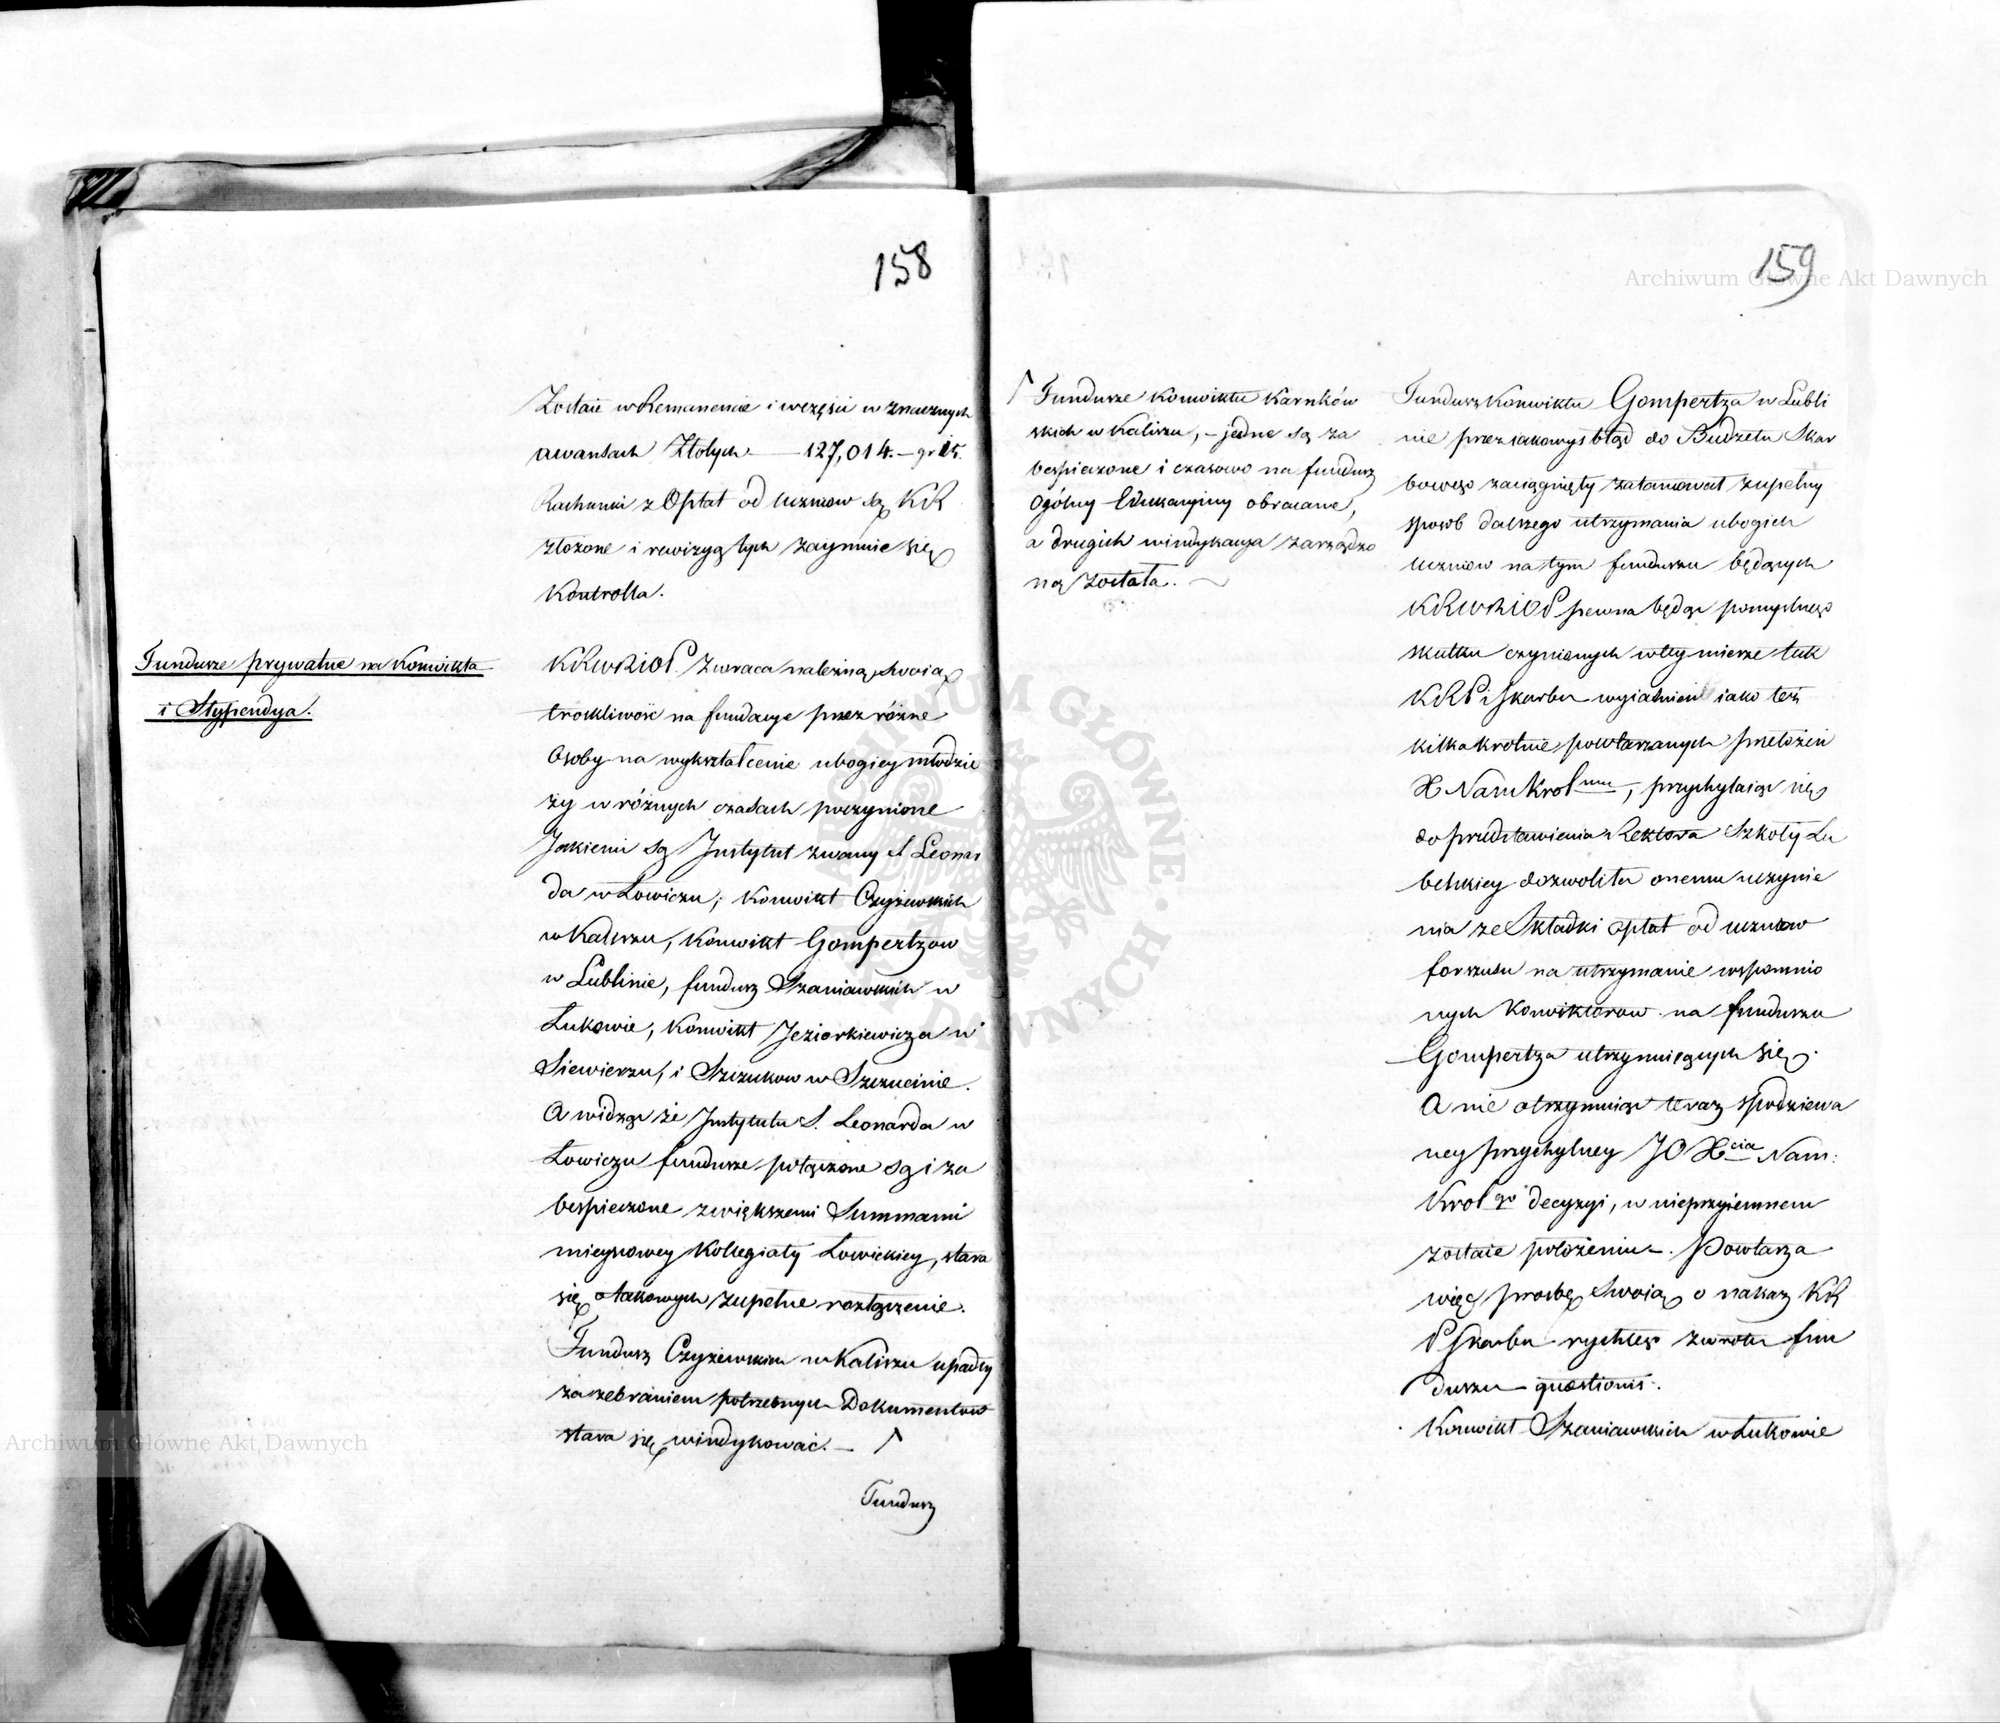 158
Zostaie w Remanencie i wczęści w znacznych
awansach Złotych — 127,014. — gr 15.
Rachunki z Opłat od uczniow są KR
złożone i rewizyą tych zaymuie się
Kontrolla.
Fundusze prywatne na Konwikta
i Stypendya.
KRWRiOP. zwraca należną swoią
troskliwość na fundacye przez różne
Osoby na wykształcenie ubogiey młodzie
ży w różnych czasach poczynione
Jakiemi są Instytut zwany S Leonar
da w Łowiczu; Konwikt Czyżewskich
w Kaliszu, Konwikt Gompertzow
w Lublinie, fundusz Szaniawskich w
Łukowie, Konwikt Jeziorkiewicza w
Siewierzu, i Szczukow w Szczucinie.
A widząc że Instytutu S. Leonarda w
Łowiczu fundusze połączone są i za
bespieczone zwiększemi Summami
mieyscowey Kollegiaty Łowickiey, stara
się o takowych zupełne rozłączenie.
Fundusz Czyżewskich w Kaliszu upadły
za zebraniem potrzebnych Dokumentow
stara się windykować. —
Fundusz
159
Fundusze konwiktu Karnków
skich w Kaliszu, – jedne są za
bespieczone i czasowo na fundusz
Ogólny Edukacyiny obracane,
a drugich windykacya zarządzo
ną została.
Fundusz Konwiktu Gompertza w Lubli
nie przez iakowyś błąd do Budżetu Skar
bowego zaciągnięty zatamował zupełny
sposob dalszego utrzymania ubogich
uczniow na tym funduszu będących
KRWRiOP pewna będąc pomyślnego
skutku czynionych w tey mierze tak
KRPiSkarbu wyiaśnień iako też
kilkakrotnie powtarzanych przełożeń
X Nam Krol mu, przychylaiąc się
do przedstawienia Rektora Szkoły Lu
belskiey dozwoliła onemu uczynie
nia ze Składki opłat od uczniow
forszusu na utrzymanie wspomnio
nych Konwiktorow na funduszu
Gompertza utrzymuiących się.
A nie otrzymuiąc teraz spodziewa
ney przychylney JO Xcia Nam:
Krol go decyzyi, w nieprzyiemnem
zostaie położeniu –. Powtarza
więc prosbę swoią o nakaz KR
P Skarbu rychłego zwrotu fun
duszu – quaestionis.
Konwikt Szaniawskich w Łukowie
Archiwum Główne Akt Dawnych
Archiwum Główne Akt Dawnych
ARCHIWUM GŁÓWNE AKT DAWNYCH